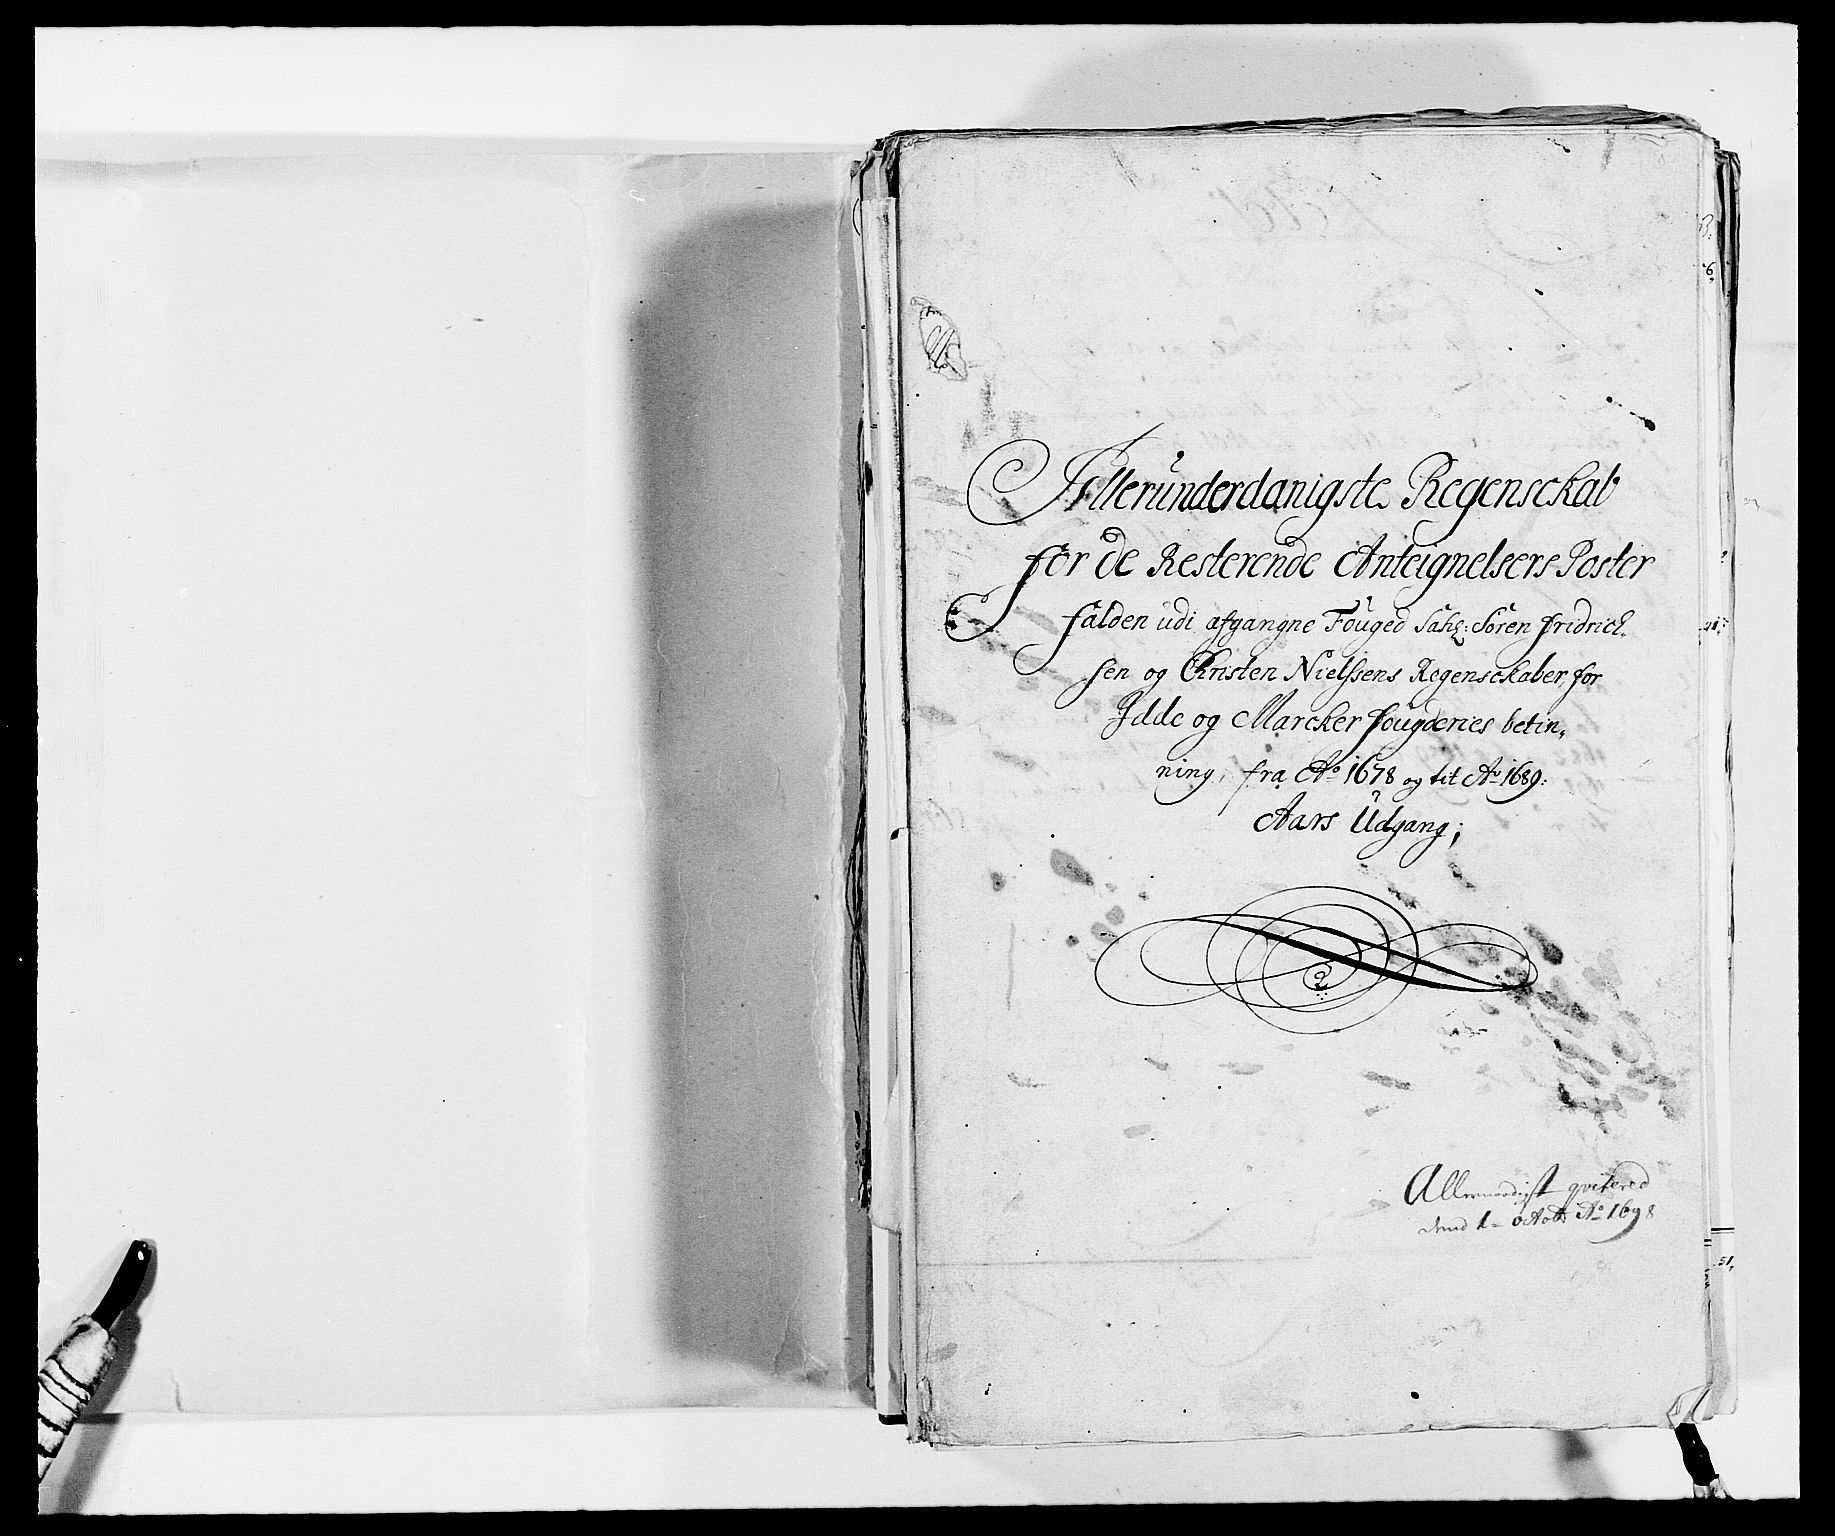 Alleründerdanigste Regenschab
for de Resterende Anteignelsers Poster
falden udi afgangne Fouged Sahl: Sören fridrich
sen og Christen Nielssens Regenschaber for
Idde og Marcker fougderies betin,
ning, fra Ao 1678 og til Ao 1689:
Aars Udgang;
Allernaadigst qvitered
dend 1 octobr Ao 1698